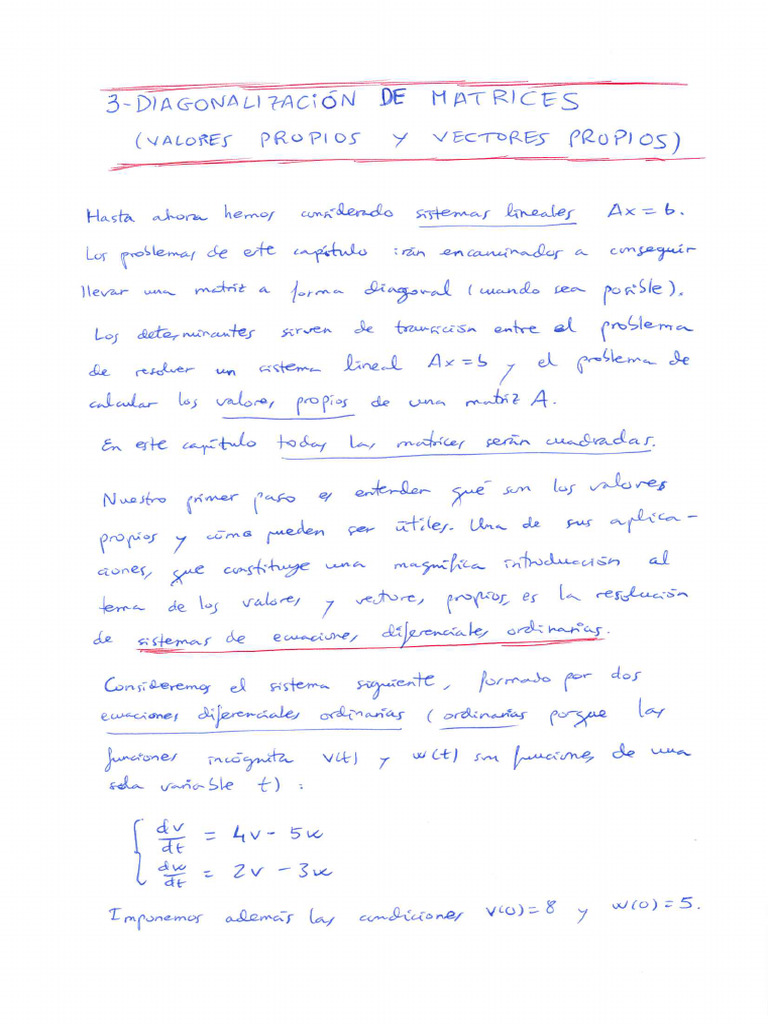 3-DIAGONALIZACIÓN DE MATRICES
(VALORES PROPIOS Y VECTORES PROPIOS)
Hasta ahora hemos considerado sistemas lineales Ax = b.
Los problemas de este capítulo irán encaminados a conseguir
llevar una matriz a forma diagonal (cuando sea posible).
Los determinantes sirven de transición entre el problema
de resolver un sistema lineal Ax=b y el problema de
calcular los valores propios de una matriz A.
En este capítulo todas las matrices serán cuadradas.
Nuestro primer paso es entender qué son los valores
propios y cómo pueden ser útiles. Una de sus aplica-
ciones, que constituye una magnífica introducción al
tema de los valores y vectores propios, es la resolución
de sistemas de ecuaciones diferenciales ordinarias.
Consideremos el sistema siguiente, formado por dos
ecuaciones diferenciales ordinarias (ordinarias porque las
funciones incógnita v(t) y w(t) son funciones de una
sola variable t):
dv/dt = 4v - 5w
dw/dt = 2v - 3w
Imponemos además las condiciones v(0)=8 y w(0)=5.